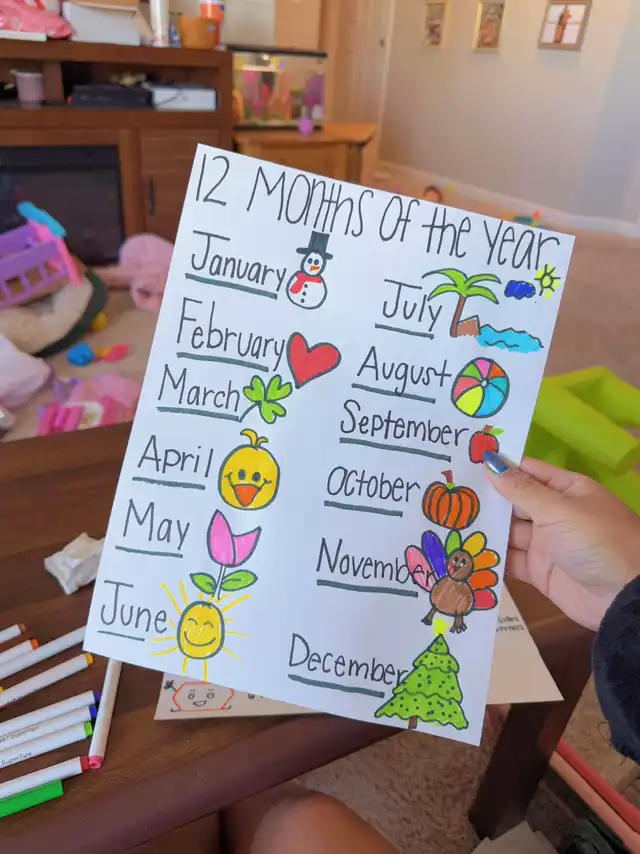 12 Months of the Year
January
February
March
April
May
June
July
August
September
October
November
December
SuperTips
SuperTips